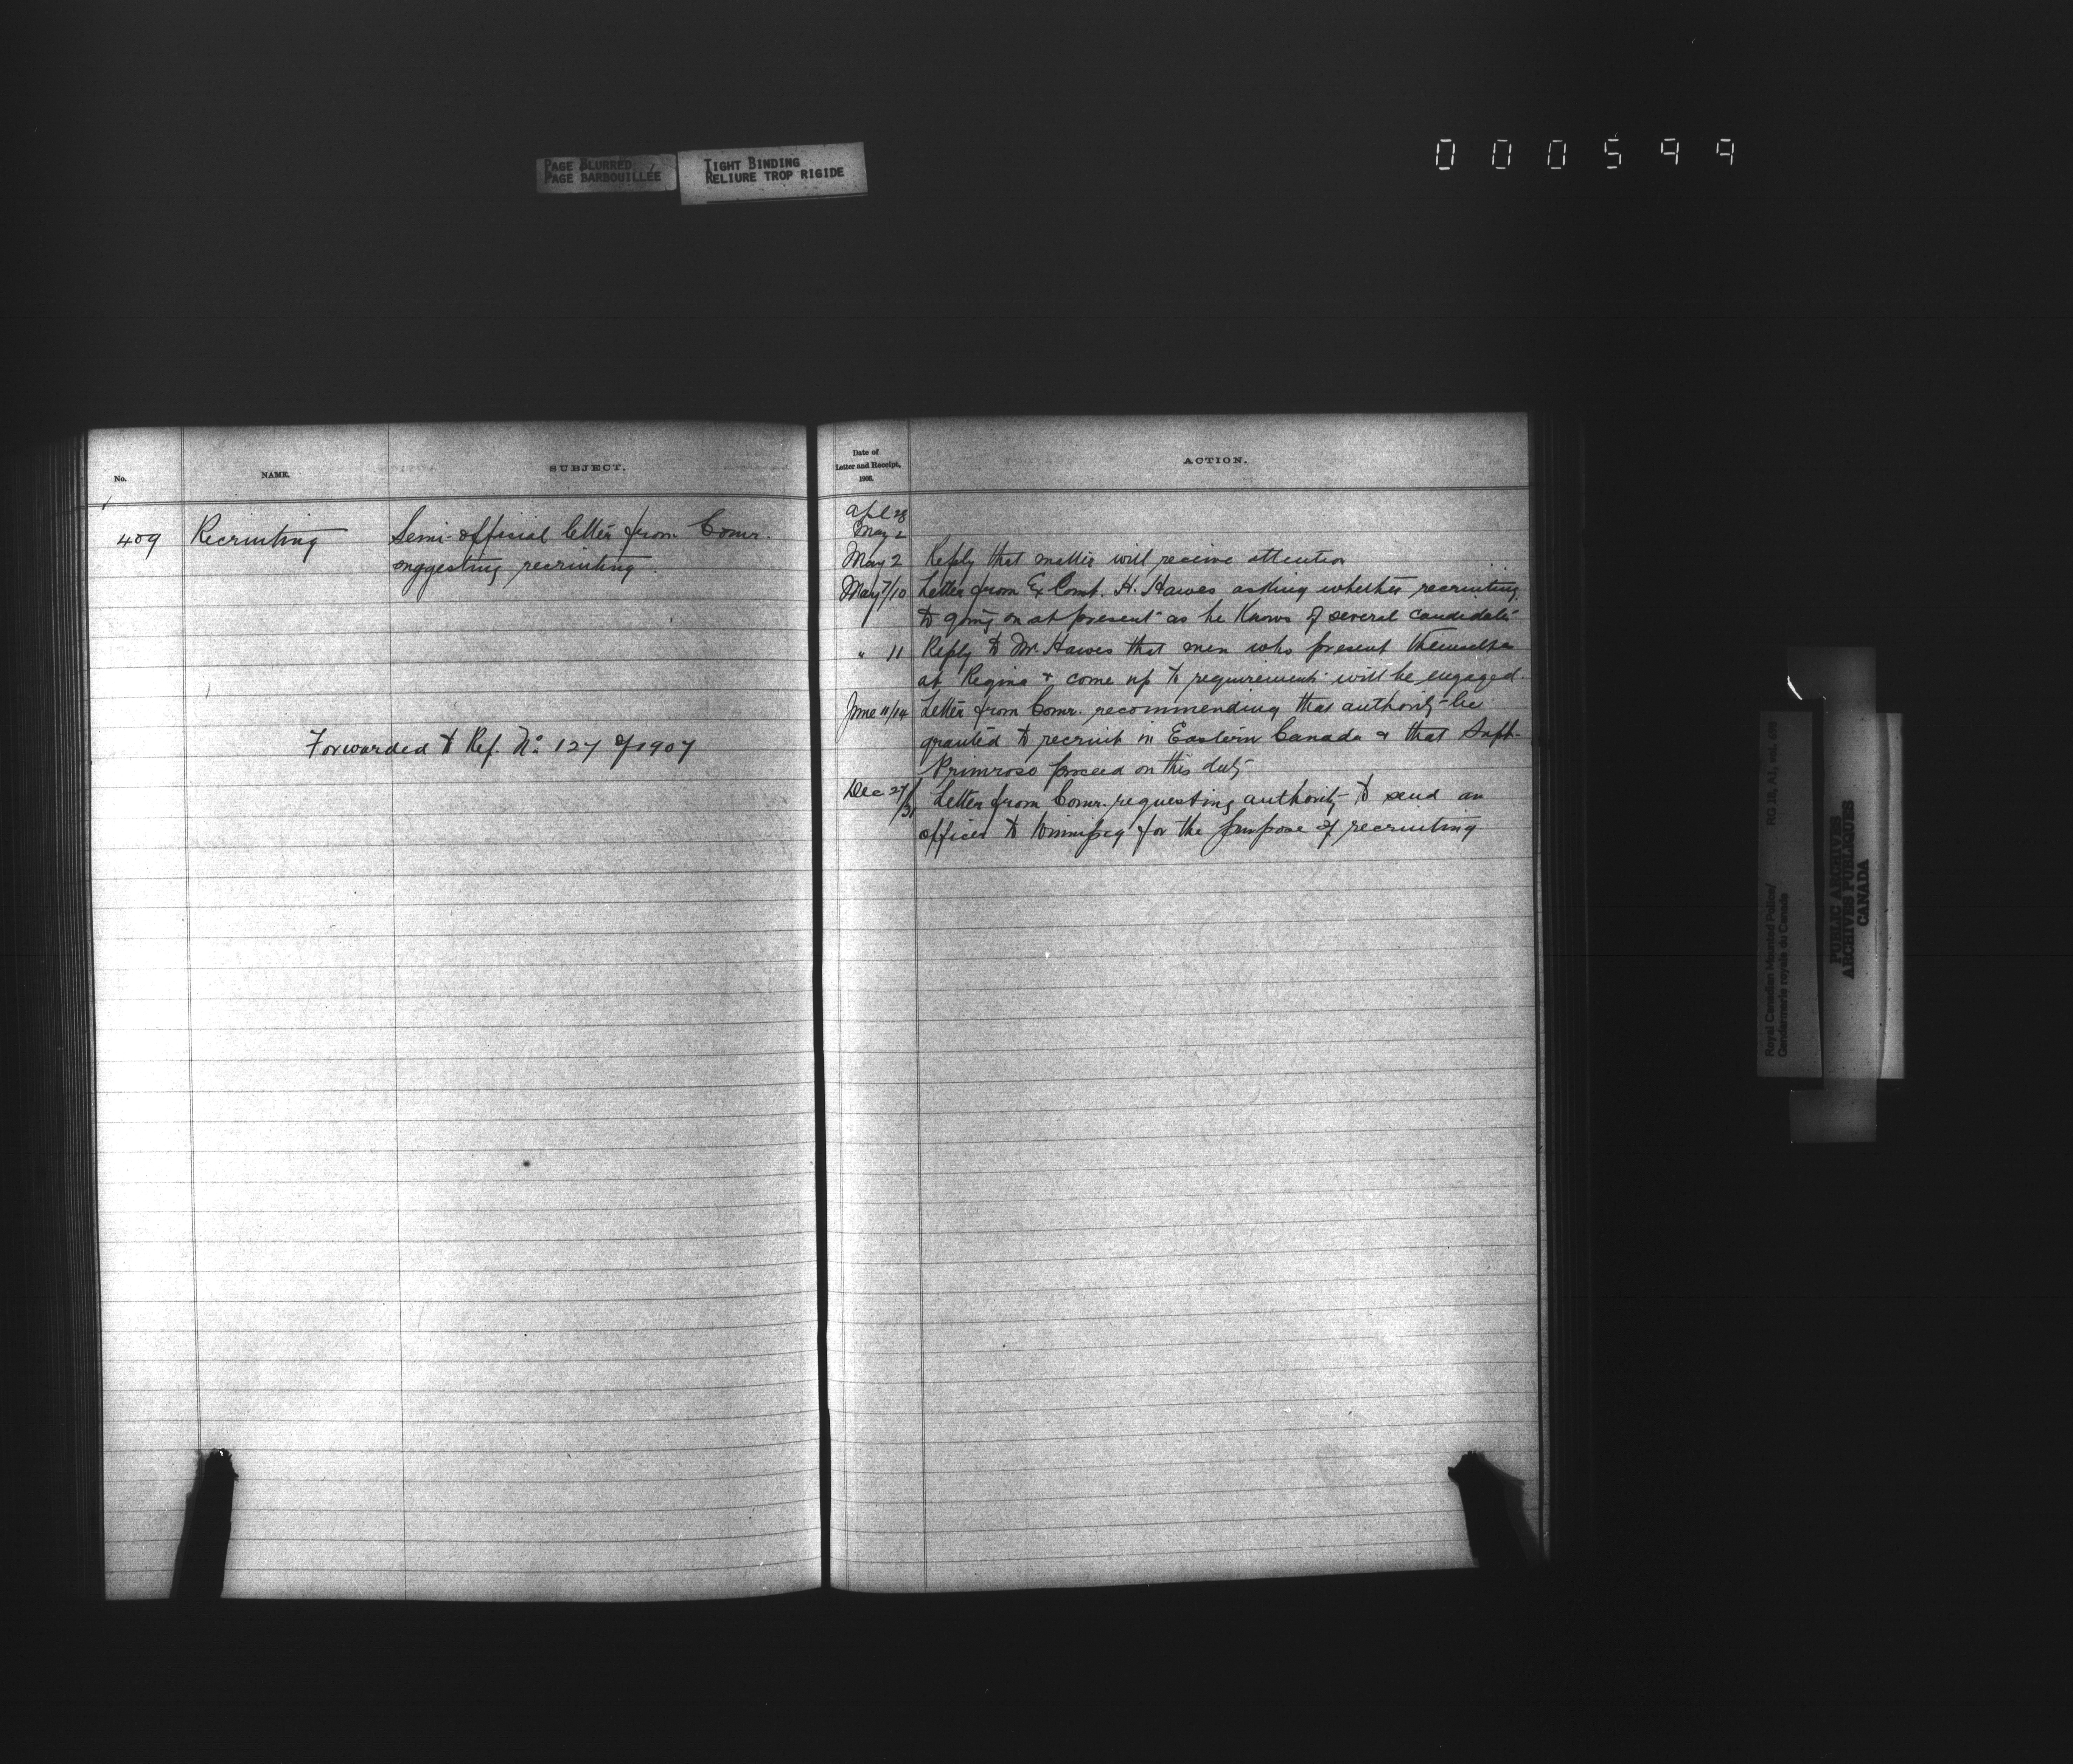 PAGE BLURRED
PAGE BARBOUILLÉE
TIGHT BINDING
RELIURE TROP RIGIDE
000599
No.
NAME.
SUBJECT.
409
Recruiting
Semi-official letter from Comr.
suggesting recruiting.
Forwarded to Ref. No 127 of 1907
Date of
Letter and Receipt,
1906.
ACTION.
Apl 28
May 2
May 2 Reply that matter will receive attention
May 7/10 Letter from Ex Const. H. Hawes asking whether recruiting
to going on at present as he knows of several candidates
" 11 Reply to Mr. Hawes that men who present themselves
at Regina & come up to requirements will be engaged.
June 11/14 Letter from Comr. recommending that authority be
granted to recruit in Eastern Canada & that Supt.
Primrose proceed on this duty.
Dec 27/31 Letter from Comr. requesting authority to send an
officer to Winnipeg for the purpose of recruiting
Royal Canadian Mounted Police/
Gendarmerie royale du Canada
RG 18, A1, vol.
PUBLIC ARCHIVES
ARCHIVES PUBLIQUES
CANADA